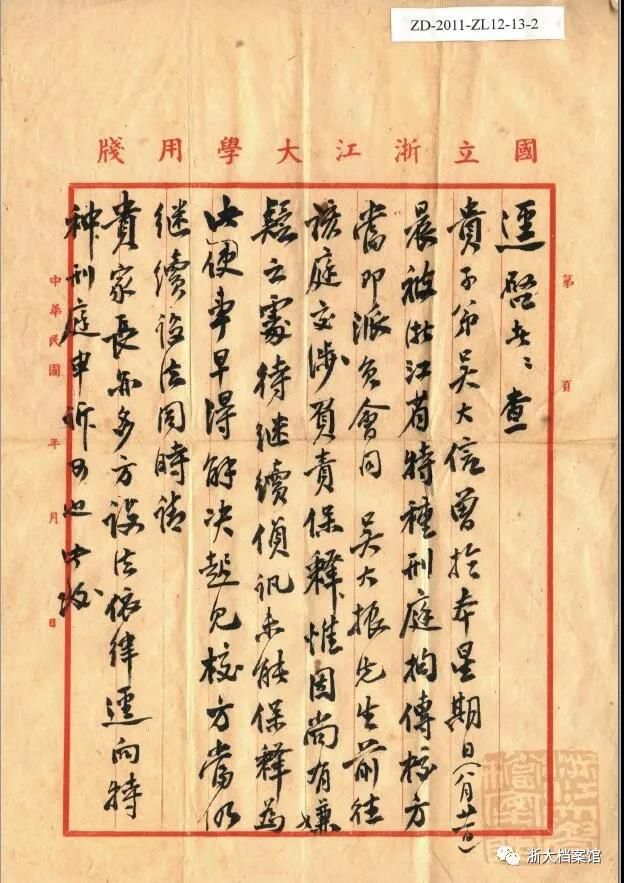 ZD-2011-ZL12-13-2
國立浙江大學用牋
第 頁
逕啓者：查
貴子弟吴大信曾於本星期日（八月廿二日）
晨被浙江省特種刑庭拘傳校方
當即派員會同 吴大振先生前往
該庭交涉負責保釋惟因尚有嫌
疑之處待继續偵訊未能保釋為
此使事早得解决起見校方當仍
继續設法同時請
貴家長亦多方設法依律逕向特
種刑庭申訴可也此致
中華民國 年 月 日
浙大档案馆